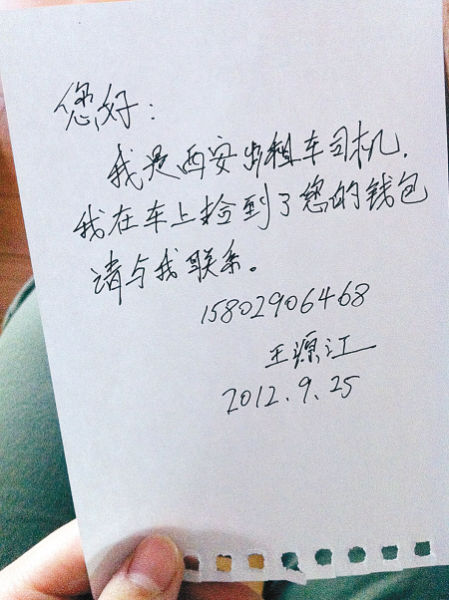 您好:
我是西安出租车司机.
我在车上捡到了您的钱包
请与我联系。
15802906468
王源江
2012.9.25